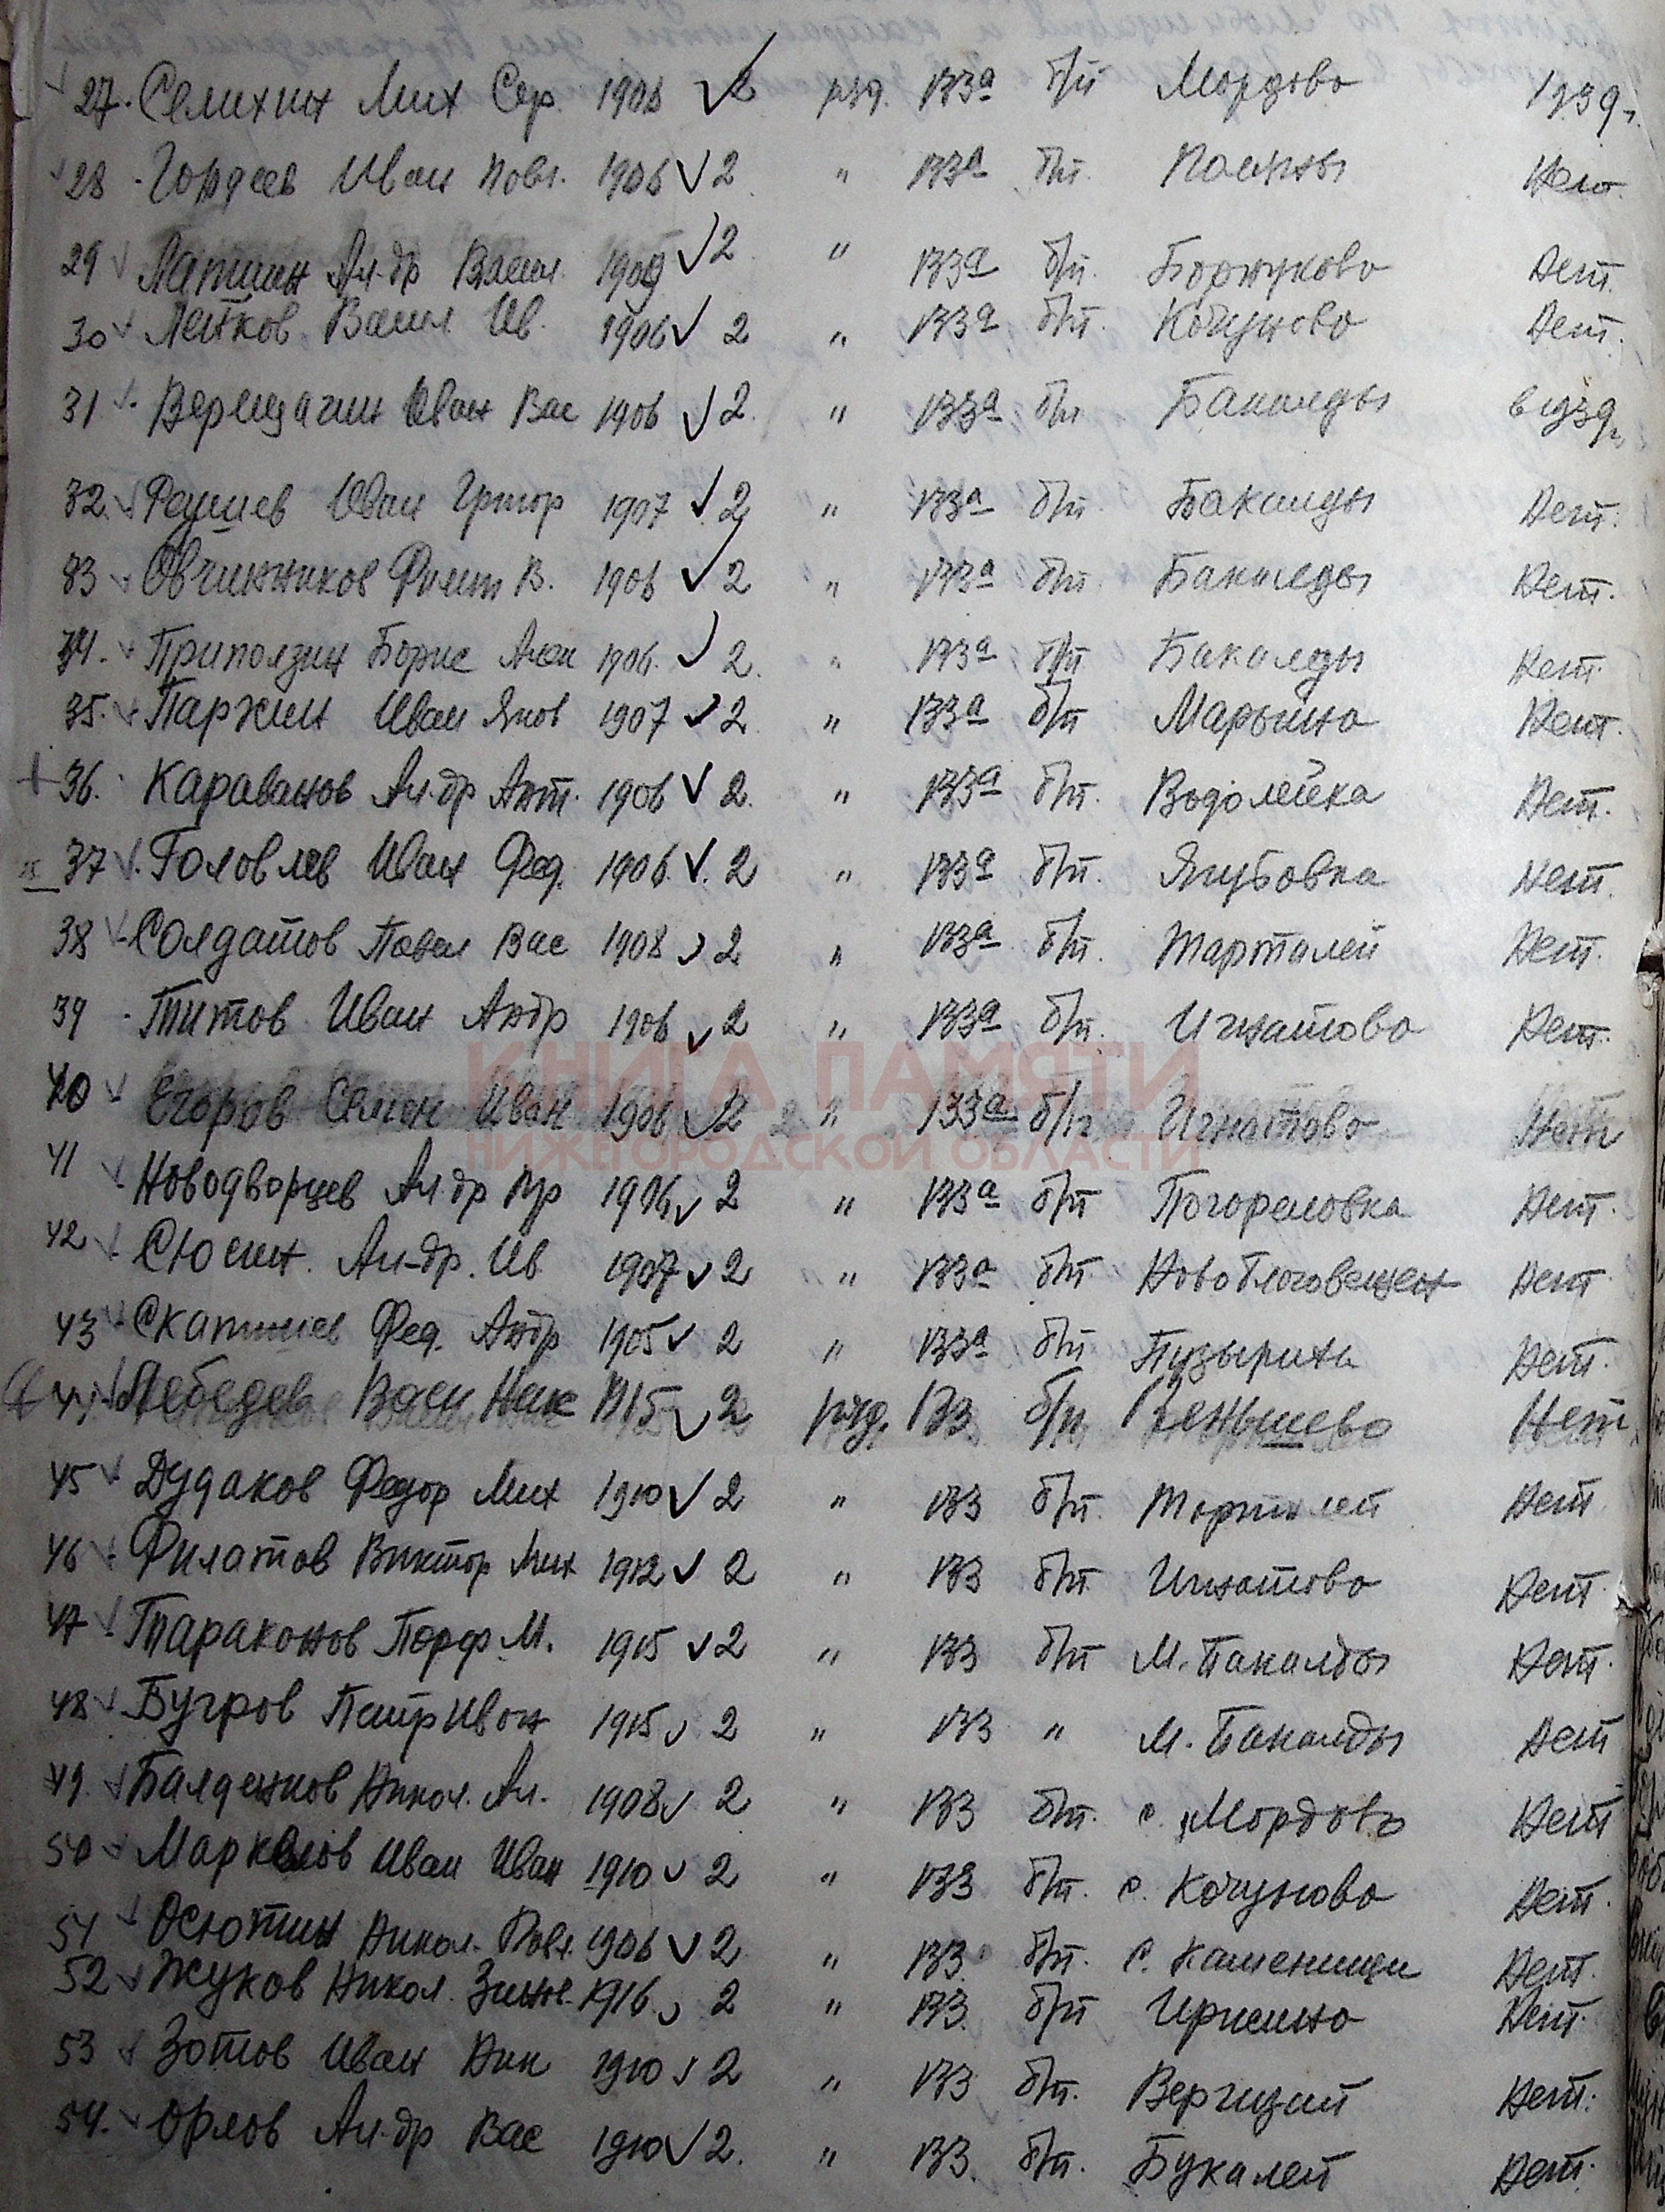 27. Семихин Мих Сер. 1906 2 ряд. 133а б/п Мордово
28 Гордеев Иван Павл. 1906 2 " 133а б/п. Поляны Нет.
29 Лапшин Ал-др Васил. 1909 2 " 133а б/п. Борнуково Нет.
30 Пейков Васил Ив. 1906 2 " 133а б/п. Кочуново Нет.
31 Верещагин Иван Вас 1906 2. " 133а б/п Бакалды
32. Иван Григор 1907 2 " 133а б/п. Бакалды Нет.
33 Овчинников Филип В. 1906 2 " 133а б/п. Бакалды Нет.
34. Приползин Борис 1906. 2. " 133а б/п Бакалды Нет.
35. Паркин Иван Яков 1907 2 " 133а б/п Марьино Нет.
36. Караванов Ал-др Ант. 1906 2. " 133а б/п. Водолейка Нет.
37. Головлев Иван Фед. 1906. 2 " 133а б/п. Ягубовка Нет.
38 Солдатов Павел Вас 1908 2 " 133а б/п. Тарталей Нет.
39 Титов Иван Андр 1906 2 " 133а б/п. Игнатово Нет.
КНИГА ПАМЯТИ
40 Егоров Семен Иван 1906 2 " 133а б/п Игнатово Нет
НИЖЕГОРОДСКОЙ ОБЛАСТИ
41 Новодворцев Ал-др 1906 2 " 133а б/п Погореловка Нет.
42 Сюсин. Ал-др. Ив 1907 2 " 133а б/п. Новоблаговещен Нет
43 Фед. Андр 1905 2 " 133а б/п Пузыриха Нет.
44 Лебедев Васи Ник 1915 2 ряд. 133 б/п Венышево Нет
45 Дудаков Федор Мих 1910 2 " 133 б/п. Тарталей Нет
46 Филатов Виктор Мих 1912 2 " 133 б/п Игнатово Нет
47 Тараканов Порф М. 1915 2 " 133 б/п М. Бакалды Нет.
48 Бугров Петр Иван 1915 2 " 133 " М. Бакалды Нет
49. Балденков Никол. Ал. 1908 2 " 133 б/п. с. Мордово Нет
50 Маркелов Иван Иван 1910 2 " 133 б/п. с. Кочуново Нет.
51 Осютин Никол. Павл. 1906 2 " 133. б/п. с. Каменищи Нет.
52 Жуков Никол. Зинов. 1916. 2 " 133. б/п Иржино Нет.
53 Зотов Иван Ник 1910 2 " 133 б/п. Вергизай Нет.
54. Орлов Ал-др Вас 1910 2. " 133. б/п. Букалей Нет.